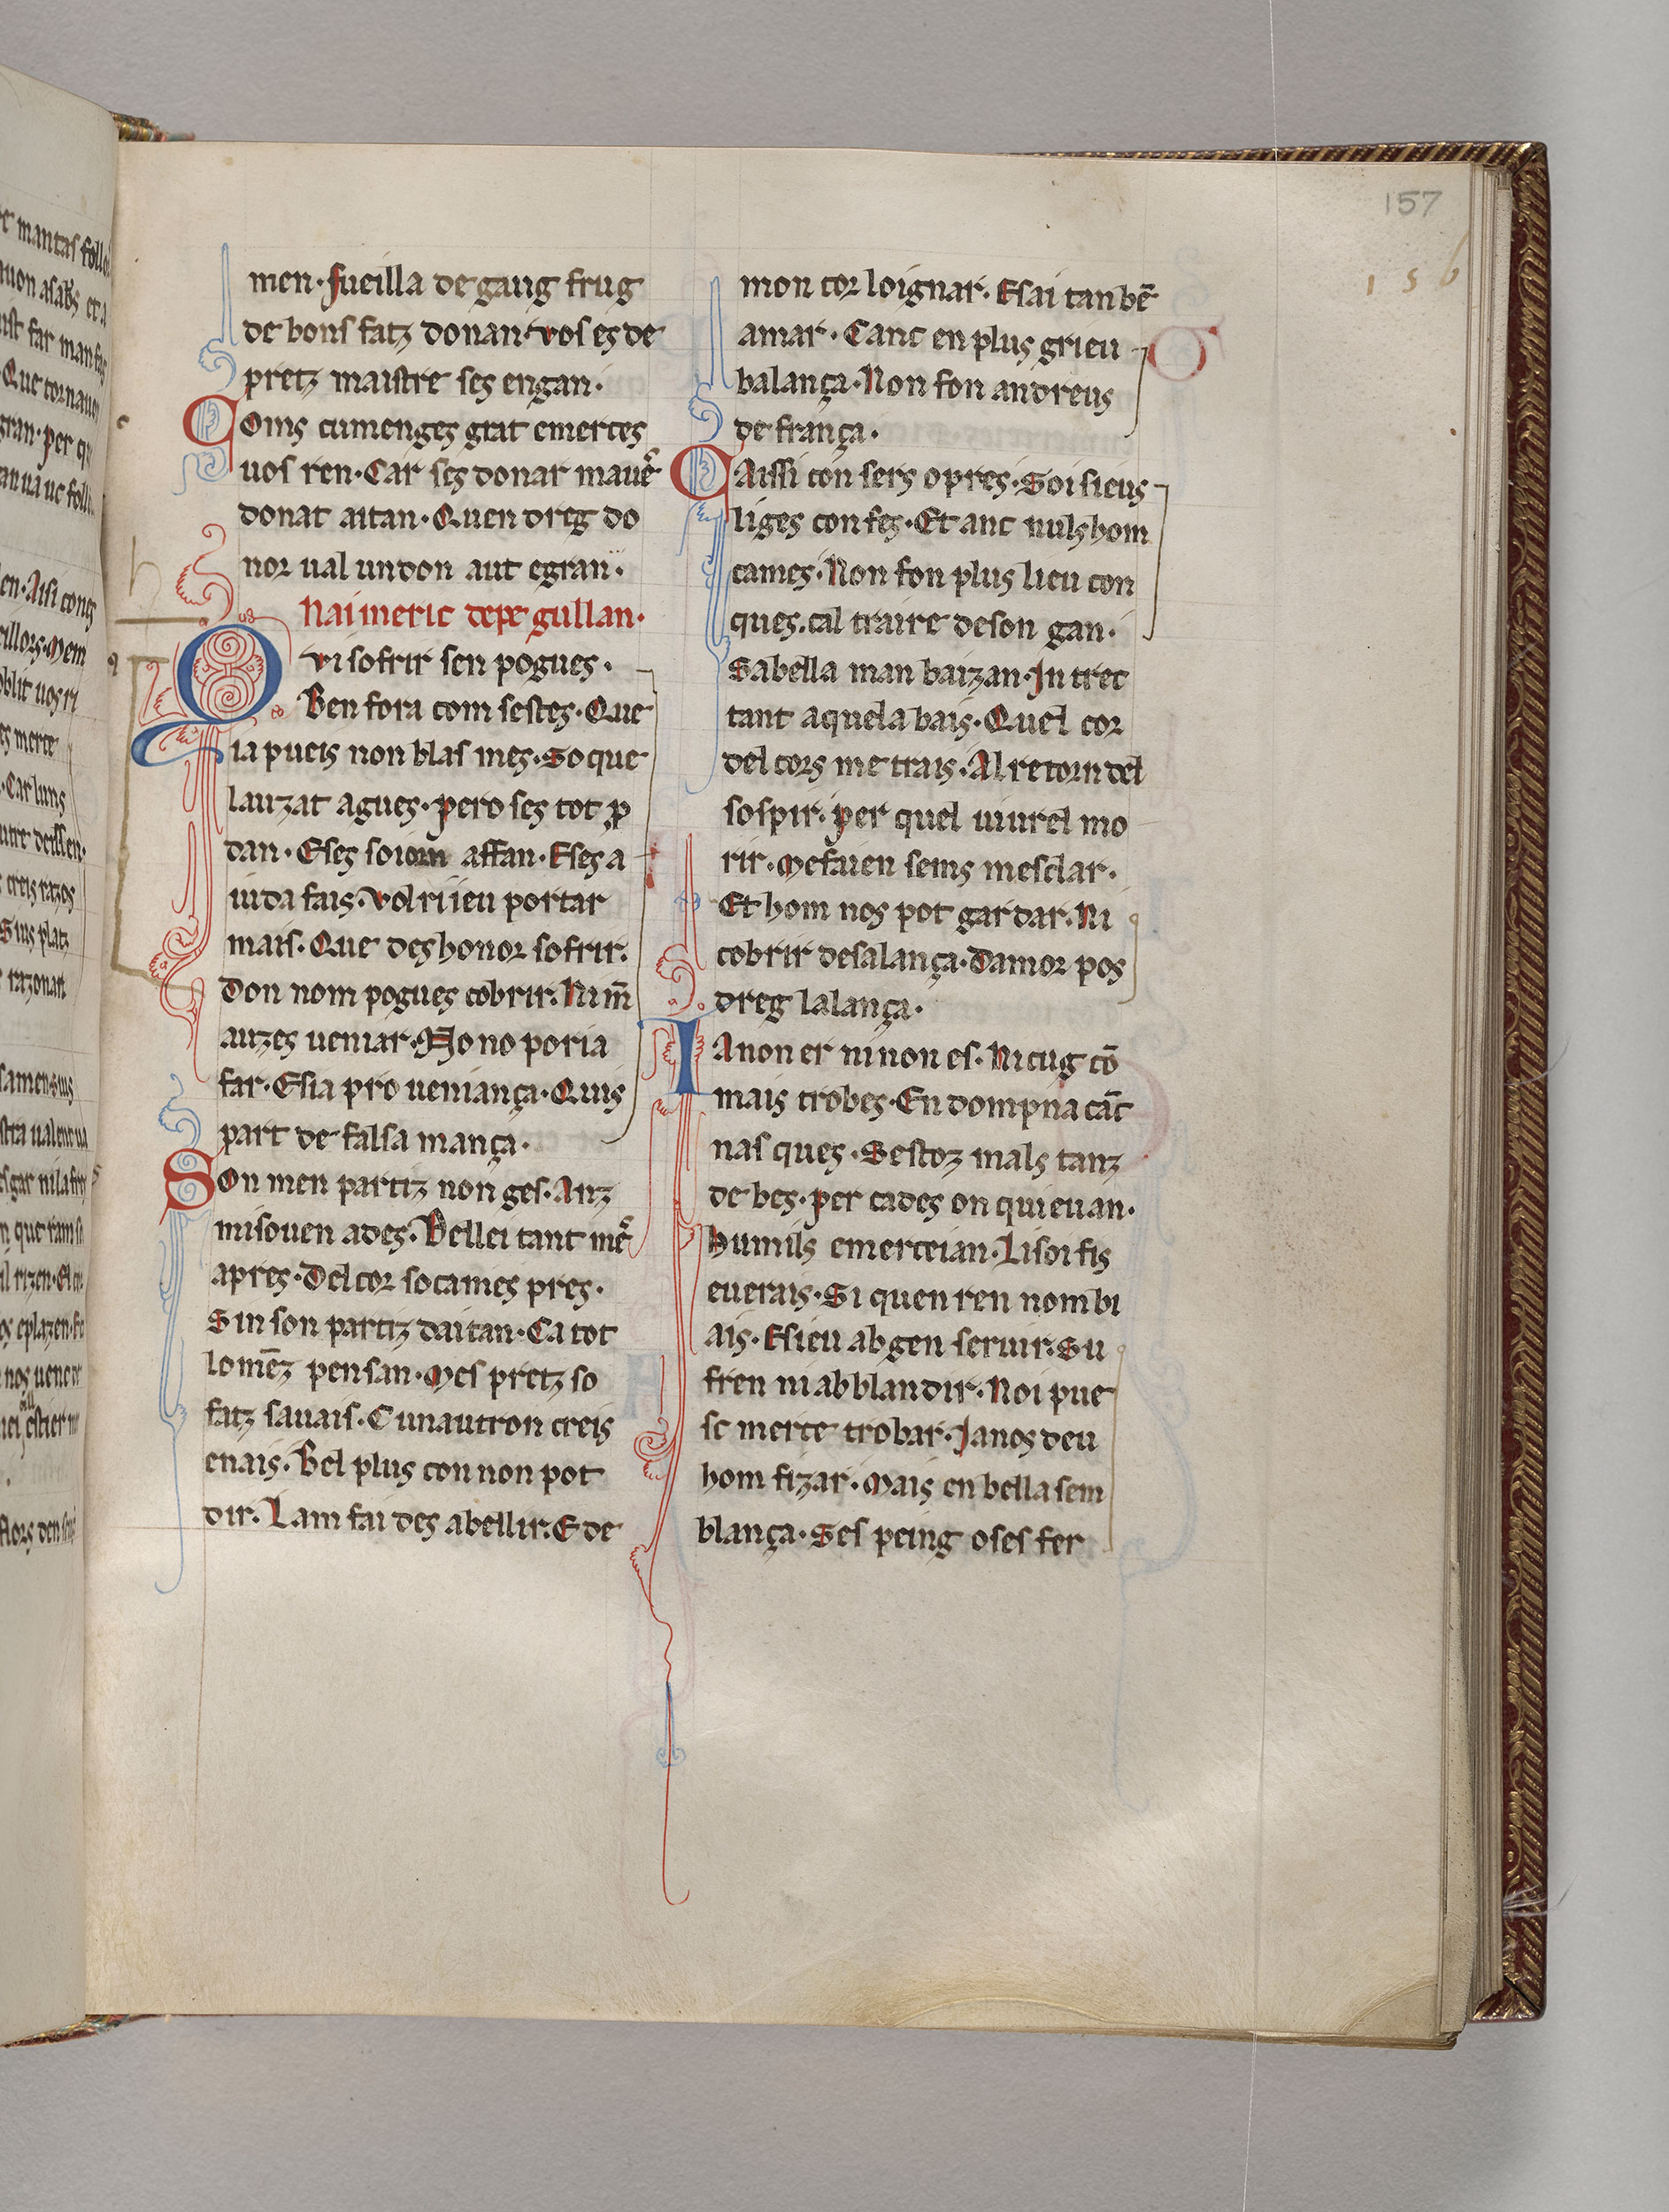 157
156
men· fueilla de gaug frug
de bons fatz donan· vos es de
pretz maistre ses engan·
Coms cumenges grat e merces
uos ren· Car ses donar mauē
donat aitan· Quen dreg do
nor ual un don aut e gran·
Naimeric de pegullan·
Qui sofrir sen pogues·
Ben fora com sestes· Que
ia pueis non blasmes· So que
lauzat agues· pero ses tot ꝑ
dan· E ses soiorn affan· E ses a
iuda fais· volri ieu portar
mais· Que deshonor sofrir·
Don nom pogues cobrir· Ni m̄
auzes ueniar· No no poria
far· E sia pro ueniança· Quis
part de falsa mança·
Son men partiz non ges· Anz
mi souen ades· Bellei tant mē
apres· Del cor so cames pres·
Sin son partiz daitan· Ca tot
lo mēz pensan· Mes pretz so
fatz sauais· Cun autron creis
e nais· Bel plus cou non pot
dir· Lam fai des abellir· E de
mon cor loignar· E sai tan bē
amar· Canc en plus grieu
balança· Non fon andreus
de frança·
Caissi con sers o pres· Soi sieus
liges confes· Et anc nuls hom
cames· Non fon plus lieu con
ques· cal traire de son gan·
Sa bella man baizan· Intret
tant aquel abais· Quel cor
del cors me trais· Al retorn del
sospir· per quel uiurel mo
rir· Me fai en sems mesclar·
Et hom nos pot gardar· Ni
cobrir de sa lança· Damor pos
dreg la lança·
Ia non er ni non es· Ni cug cō
mais trobes· En dompna cāt
nasques· Sestoz mals tanz
de bes· per cades on quieu an·
humils e merceian· Li soi fis
e uerais· Si quen ren nom bi
ais· E sieu ab gen seruir· Su
fren ni ab blandir· Noi pue
sc merce trobar· Ja nos deu
hom fizar· Mais en bella sem
blança· Ses peing o ses fer